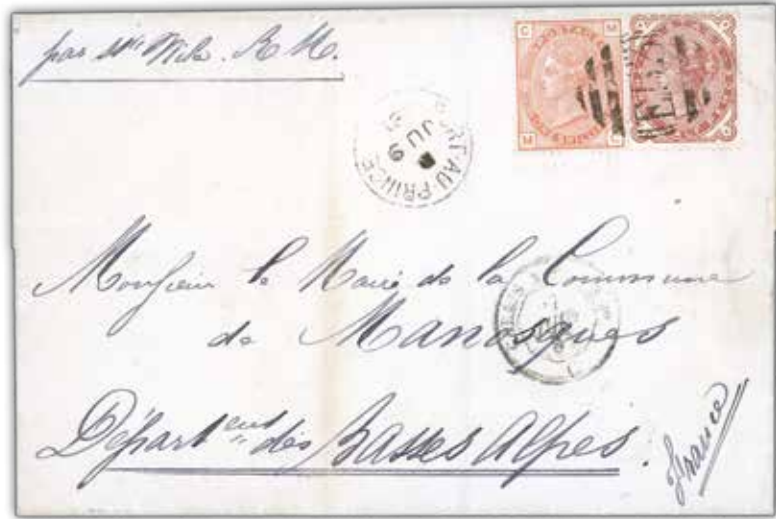 par
PORT-AU-PRINCE
JU 9
C M
M C
Monsieur le Maire de la Commune
de Manosques
Départ ent des Basses Alpes.
France